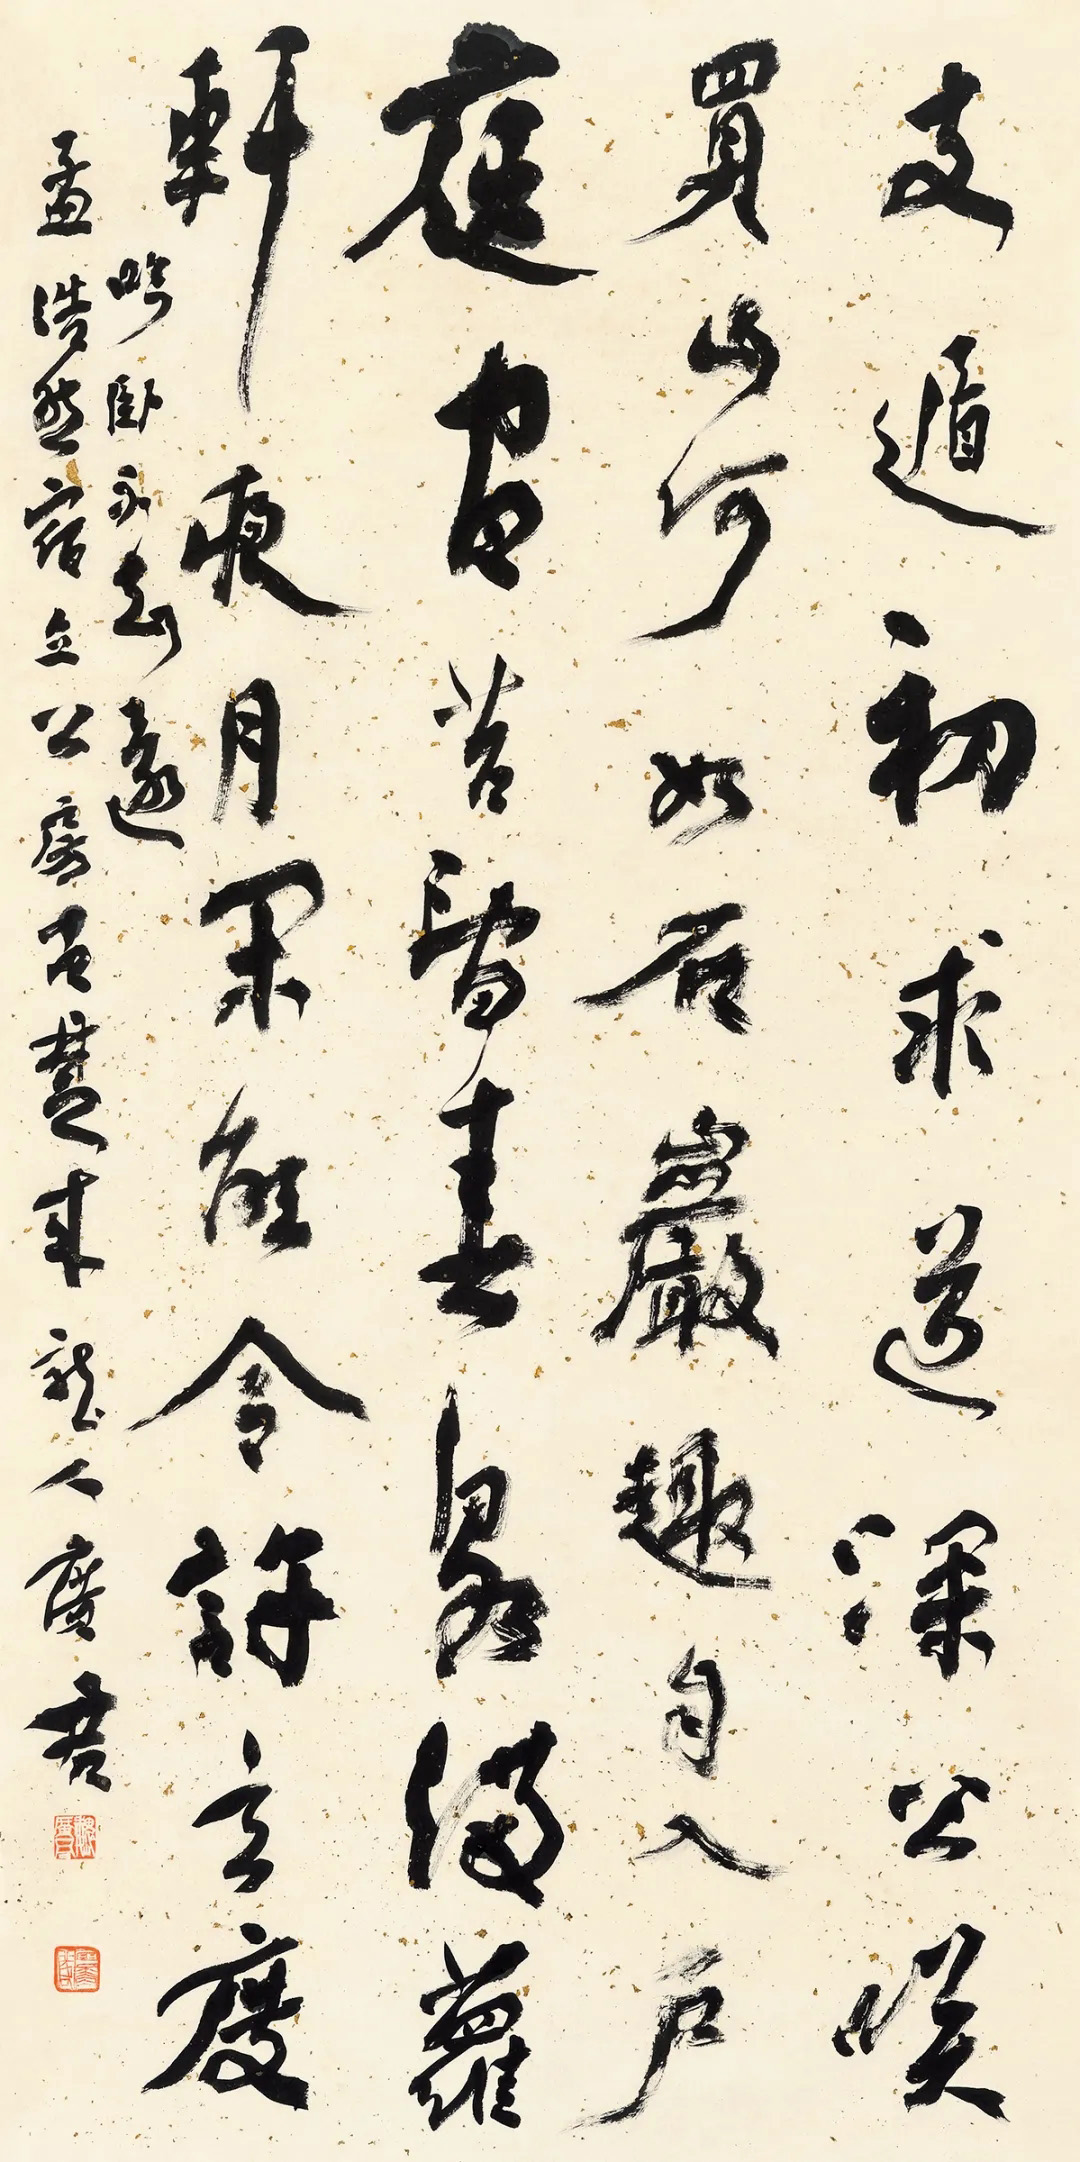 支遁初求道深公咲
買山何如石巖趣自入户
庭間苔澗春泉滿蘿
軒夜月閑能令許玄度
吟卧不知還
孟浩然宿立公房古楚來龍人廣君